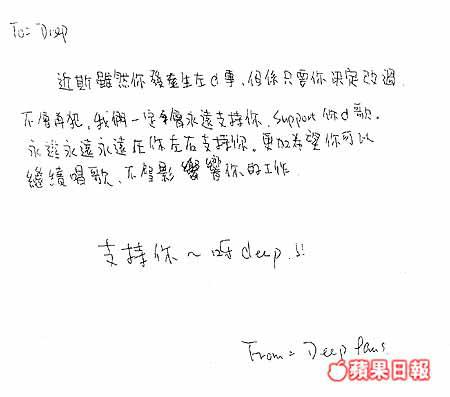 To= Deep
近斯雖然你發生左d事,但係只要你決定改過
不會再犯,我們一定會永遠支持你,support 你d歌.
永遠永遠永遠在你左右支持你,更加希望你可以
繼續唱歌、不會影響你的工作
支持你~呀deep.s!!
From= Deep fans.
蘋果日報